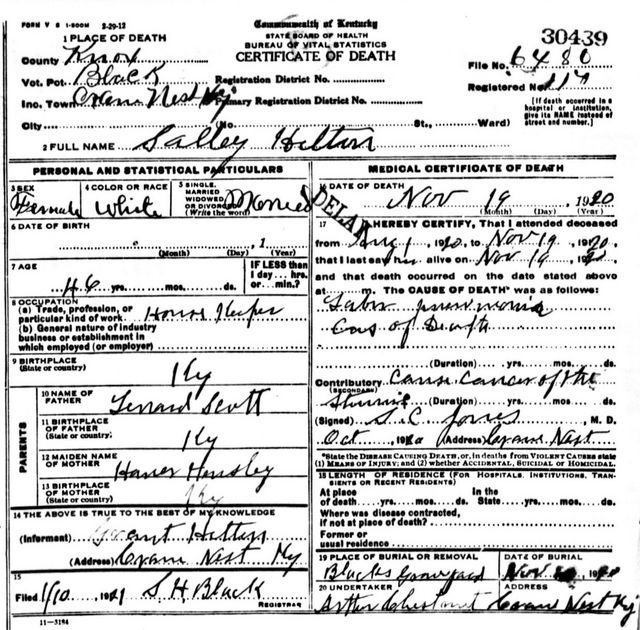 FORM V S 1-500M 3-29-12
Commonwealth of Kentucky
STATE BOARD OF HEALTH
BUREAU OF VITAL STATISTICS
CERTIFICATE OF DEATH
30439
1 PLACE OF DEATH
County Knox
File No. 6480
Vot. Pct Black
Registration District No.
Registered No. 117
Inc. Town Crane Nest Ky
Primary Registration District No.
[If death occurred in a hospital or institution, give its NAME instead of street and number.]
City (No. St., Ward)
2 FULL NAME Salley Hilton
PERSONAL AND STATISTICAL PARTICULARS
3 SEX
Female
4 COLOR OR RACE
White
5 SINGLE, MARRIED WIDOWED OR DIVORCED (Write the word)
Married
6 DATE OF BIRTH
(Month) (Day) (Year)
7 AGE
46 yrs. mos. ds.
IF LESS than 1 day hrs. or min.?
8 OCCUPATION
(a) Trade, profession, or particular kind of work House Keeper
(b) General nature of industry business or establishment in which employed (or employer)
9 BIRTHPLACE
(State or country)
Ky
PARENTS
10 NAME OF FATHER
Scott
11 BIRTHPLACE OF FATHER
(State or country)
Ky
12 MAIDEN NAME OF MOTHER
Hensley
13 BIRTHPLACE OF MOTHER
(State or country)
Ky
14 THE ABOVE IS TRUE TO THE BEST OF MY KNOWLEDGE
(Informant) Grant Hilton
(Address) Crane Nest Ky
15
Filed 1/10, 1921 S. H. Black
REGISTRAR
11-3194
MEDICAL CERTIFICATE OF DEATH
16 DATE OF DEATH
Nov 19 1920
(Month) (Day) (Year)
DELAY
17 I HEREBY CERTIFY, That I attended deceased
from 1, 1920, to Nov 19, 1920,
that I last saw alive on Nov 19, 1920
and that death occurred on the date stated above
at m. The CAUSE OF DEATH* was as follows:
Labor pneumonia
Caus of Death
(Duration) yrs. mos. ds.
Contributory Cause Cancer of the
(SECONDARY)
(Duration) yrs. mos. ds.
(Signed) S. C. Jones, M. D.
Oct, 1920 (Address) Crane Nest
*State the DISEASE CAUSING DEATH, or, in deaths from VIOLENT CAUSES state (1) MEANS OF INJURY; and (2) whether ACCIDENTAL, SUICIDAL OR HOMICIDAL.
18 LENGTH OF RESIDENCE (FOR HOSPITALS, INSTITUTIONS, TRANSIENTS OR RECENT RESIDENTS)
At place of death yrs. mos. ds. In the State yrs. mos. ds.
Where was disease contracted, if not at place of death?
Former or usual residence
19 PLACE OF BURIAL OR REMOVAL
Blacks Graveyard
DATE OF BURIAL
Nov 1920
20 UNDERTAKER
Arthur Chestnut
ADDRESS
Crane Nest Ky